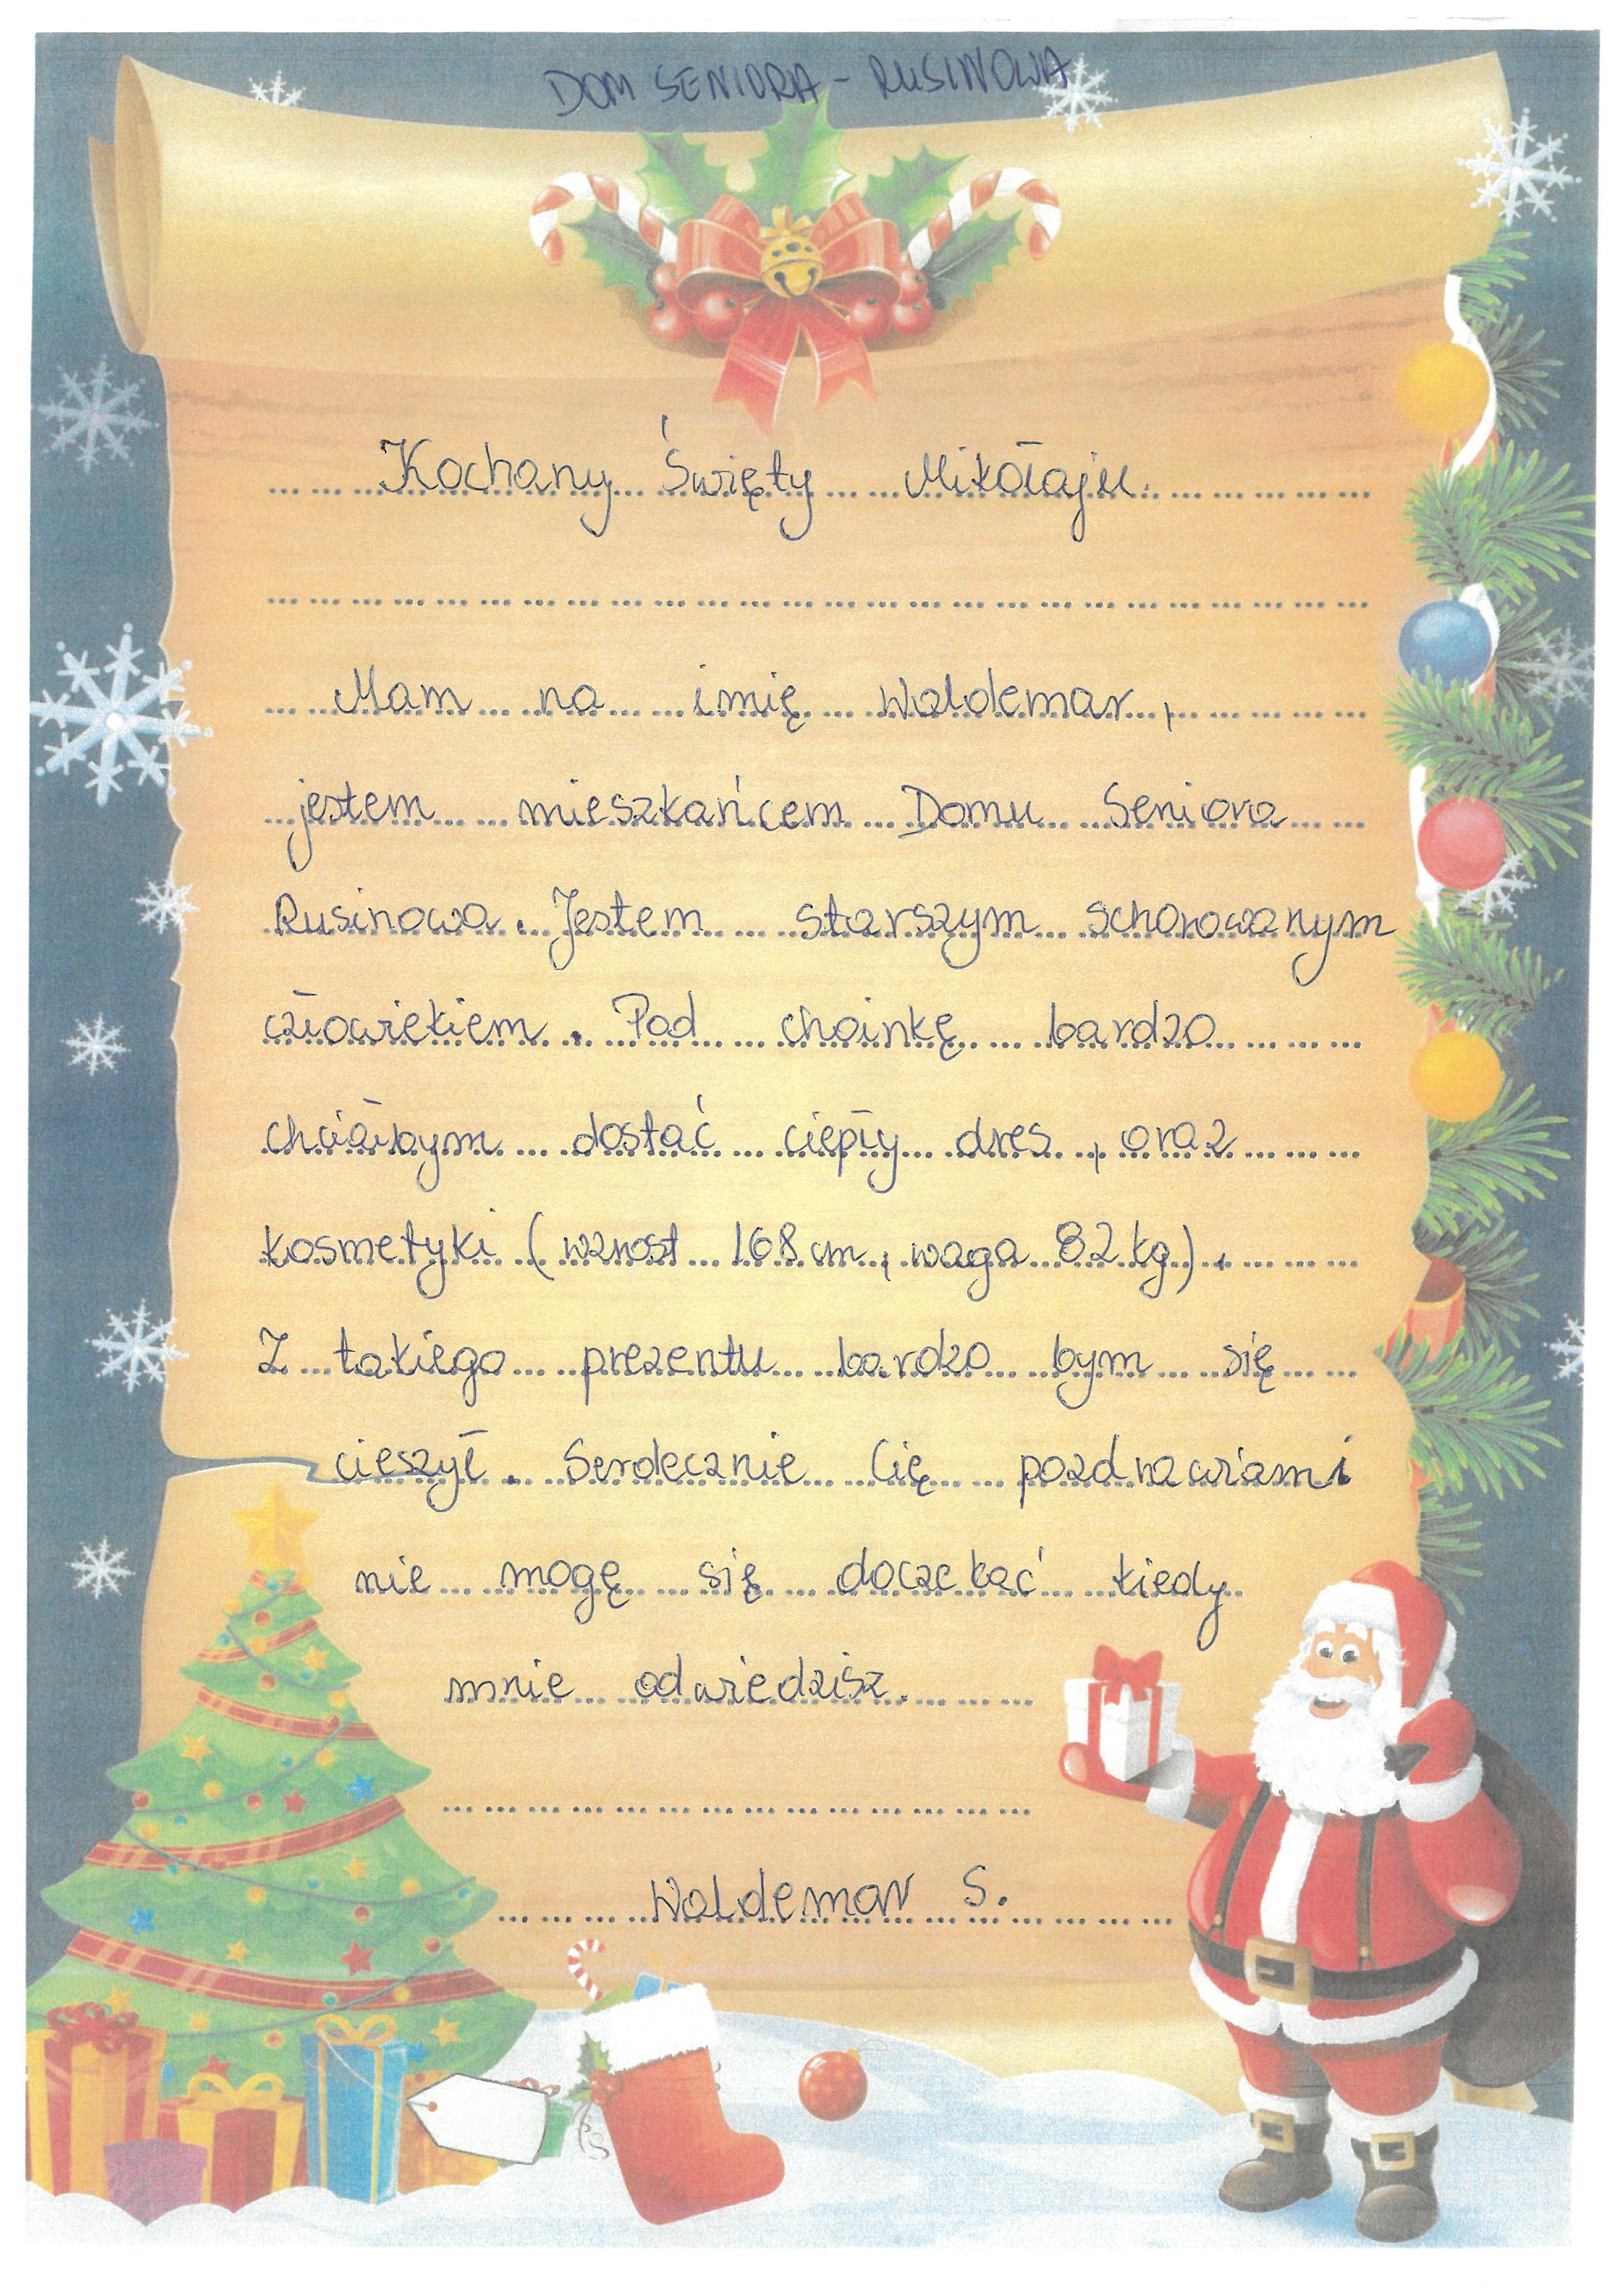 DOM SENIORA - RUSINOWA
Kochany Święty Mikołaju.
Mam na imię Waldemar,
jestem mieszkańcem Domu Seniora
Rusinowa. Jestem starszym schorowanym
człowiekiem. Pod choinkę bardzo
chciałbym dostać ciepły dres, oraz
kosmetyki (wzrost 168 cm, waga 82 kg).
Z takiego prezentu bardzo bym się
cieszył. Serdecznie Cię pozdrawiam i
nie mogę się doczekać kiedy
mnie odwiedzisz.
Waldemar S.